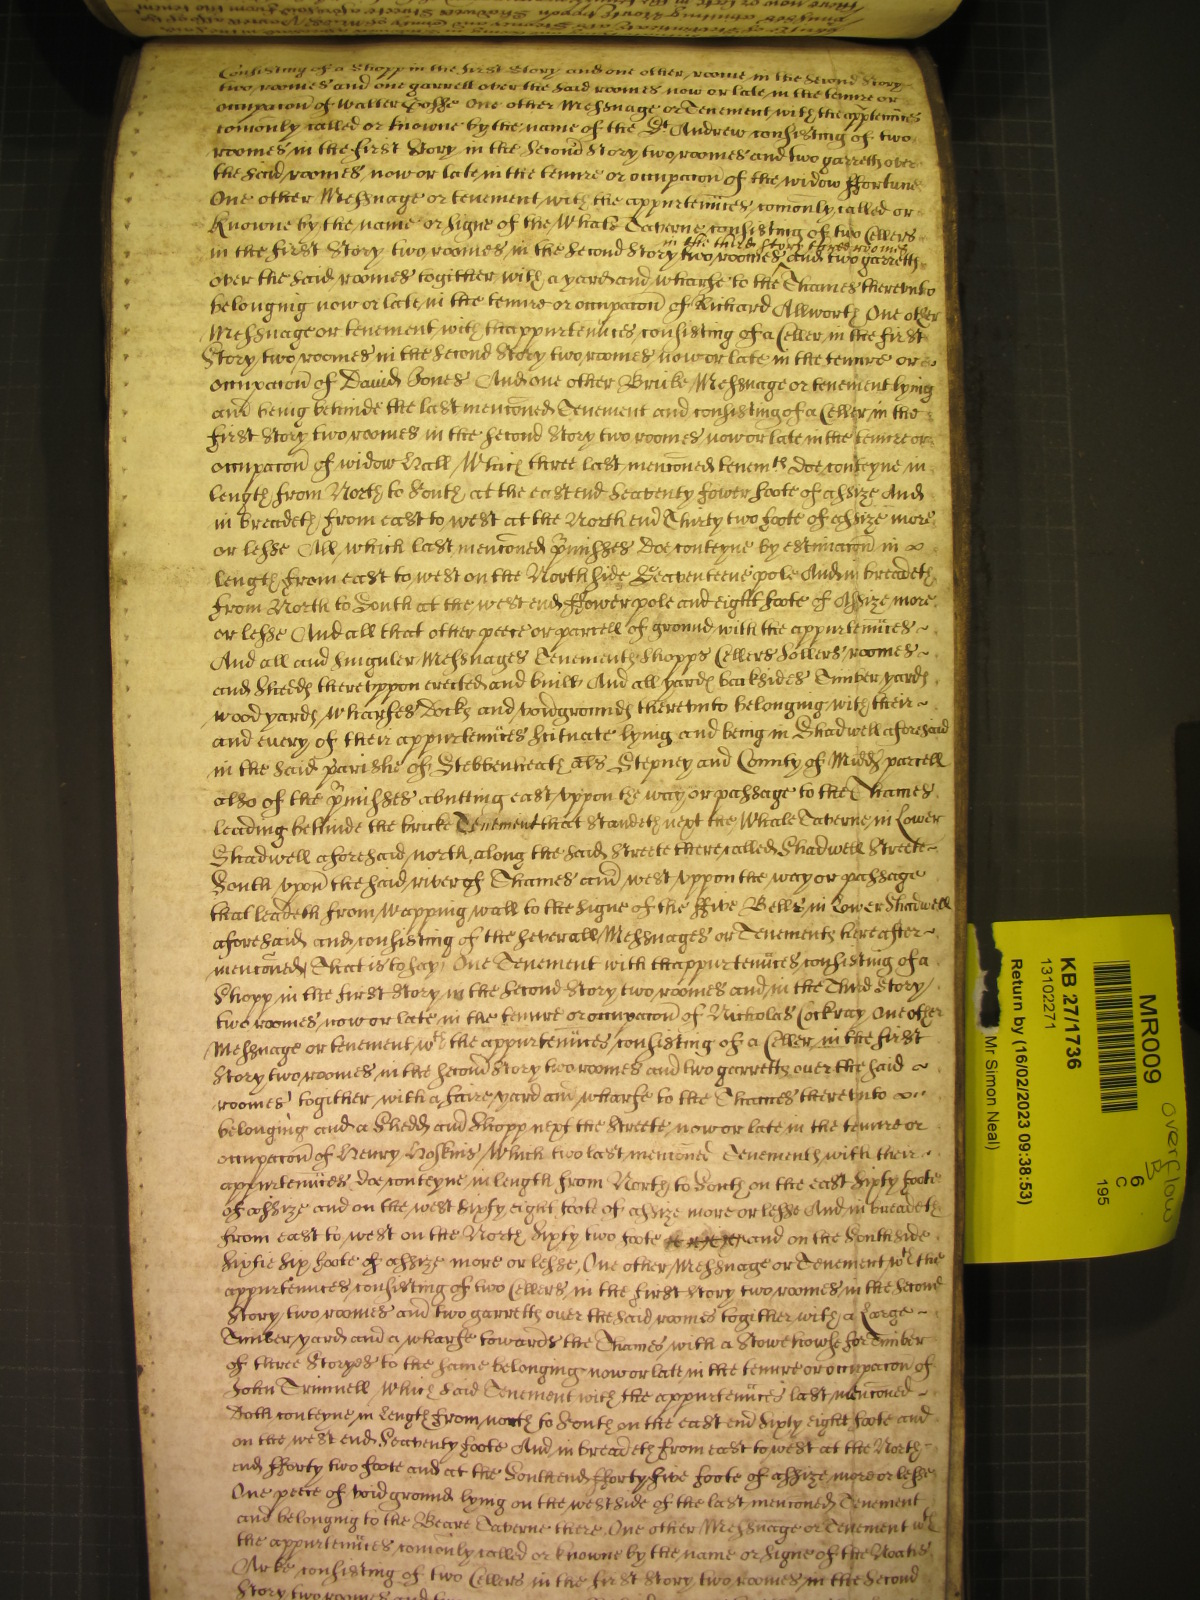 Consisting of a Shopp in the first Story and one other roome in the Second Story
two roomes and one garrell over the said roomes now or late in the tenure or
occupacon of Walter One other Messuage or Tenement with the apptenncs
comonly called or knowne by the name of the St Andrew consisting of two
roomes in the first Story in the Second Story two roomes and two garretts over
the said roomes now or late in the tenure or occupacon of the widow ffortune
One other Messuage or tenement with the appurtenncs comonly called or
knowne by the name or signe of the Whale Taverne consisting of two Cellers
in the third Story three roomes
in the first Story two roomes in the Second Story two roomes and two garretts
over the said roomes together with a yard and wharfe to the Thames therevnto
belonging now or late in the tenure or occupacon of Richard Allworth One other
Messuage or tenement with thappurtenncs consisting of a Celler in the first
Story two roomes in the Second Story two roomes now or late in the tenure or
occupacon of David Jones And one other Bricke Messuage or tenement lying
and being behinde the last menconed Tenement and consisting of a Celler in the
first Story two roomes in the Second Story two roomes now or late in the tenure or
occupacon of widow Hall Which three last menconed tenemts doe conteyne in
length from North to South at the east end Seaventy fower foote of assize And
in breadeth from east to west at the North end Thirty two foote of assize more
or lesse All which last menconed pmisses doe conteyne by estimacon in
length from east to west on the North side Seaventeene pole And in breadeth
from North to South at the west end ffower pole and eight foote of Assize more
or lesse And all that other peece or parcell of ground with the appurtenncs
And all and singuler Messuages Tenements Shopps Cellers Sollers roomes
and Shedds therevppon erected and built And all yards backsides Timber yards
wood yards Wharfes Docks and voidgrounds therevnto belonging with their
and every of their appurtenncs scituate lying and being in Shadwell aforesaid
in the said parishe of Stebbenheath als Stepney and County of Midds parcell
also of the pmisses abutting east vppon the way or passage to the Thames
leading behinde the bricke Tenement that standeth next the Whale Taverne in Lower
Shadwell aforesaid north along the said Streete there called Shadwell Streete
South vpon the said river of Thames and west vppon the way or passage
that leadeth from Wapping wall to the signe of the ffive Bells in Lower Shadwell
aforesaid and consisting of the severall Messuages or Tenements hereafter
menconed (That is to say) One Tenement with thappurtenncs consisting of a
Shopp in the first Story in the Second Story two roomes and in the Third Story
two roomes now or late in the tenure or occupacon of Nicholas Cockray One other
Messuage or tenement wth the appurtenncs consisting of a Celler in the first
Story two roomes in the second Story two roomes and two garretts over the said
roomes together with a faire yard and wharfe to the Thames therevnto
belonging and a Shedd and Shopp next the Streete now or late in the tenure or
occupacon of Henry Hoskins Which two last menconed Tenements with their
appurtenncs doe conteyne in length from North to South on the east Sixty foote
of assize and on the west Sixty eight foote of assize more or lesse And in breadeth
from east to west on the North Sixty two foote and on the South side
Sixtie Six foote of assize more or lesse One other Messuage or Tenement wth the
appurtenncs consisting of two Cellers in the first Story two roomes in the Second
Story two roomes and two garretts over the said roomes together with a Large
Timber yard and a wharfe towards the Thames with a Stowehowse for Timber
of three Storyes to the same belonging now or late in the tenure or occupacon of
John Trinnell Which said Tenement with the appurtenncs last menconed
Doth conteyne in length from north to South on the east end Sixty eight foote and
on the west end Seaventy foote And in breadeth from east to west at the North
end fforty two foote and at the South end fforty five foote of assize more or lesse
One peece of void ground lying on the west side of the last menconed Tenement
and belonging to the Beare Taverne there One other Messuage or Tenement wth
the appurtenncs comonly called or knowne by the name or signe of the Noahs
Arke consisting of two Cellers in the first Story two roomes in the Second
Story two roomes and two
MR009
overflow
B
6
C
195
KB 27/1736
13102271
Return by (16/02/2023 09:38:53)
Mr Simon Neal)